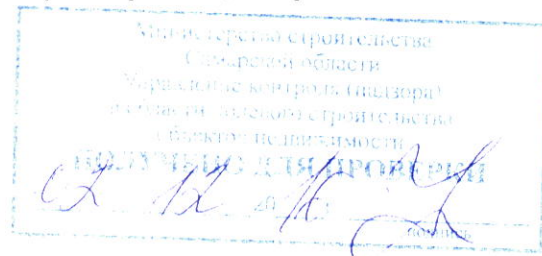 Министерство строительства
Самарской области
Управление контроля (надзора)
в области долевого строительства
объектов недвижимости
ПОЛУЧЕНО ДЛЯ ПРОВЕРКИ
02 12 20
подпись